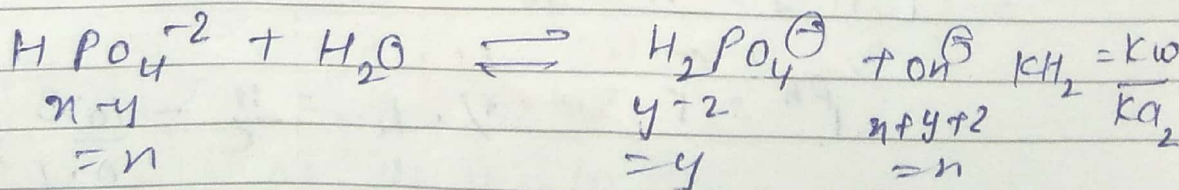 H PO₄⁻² + H₂O ⇌ H₂PO₄⊖ + OH⊖ KH₂ = Kw/Ka₂
x-y y-z x+y+z
=x =y =x